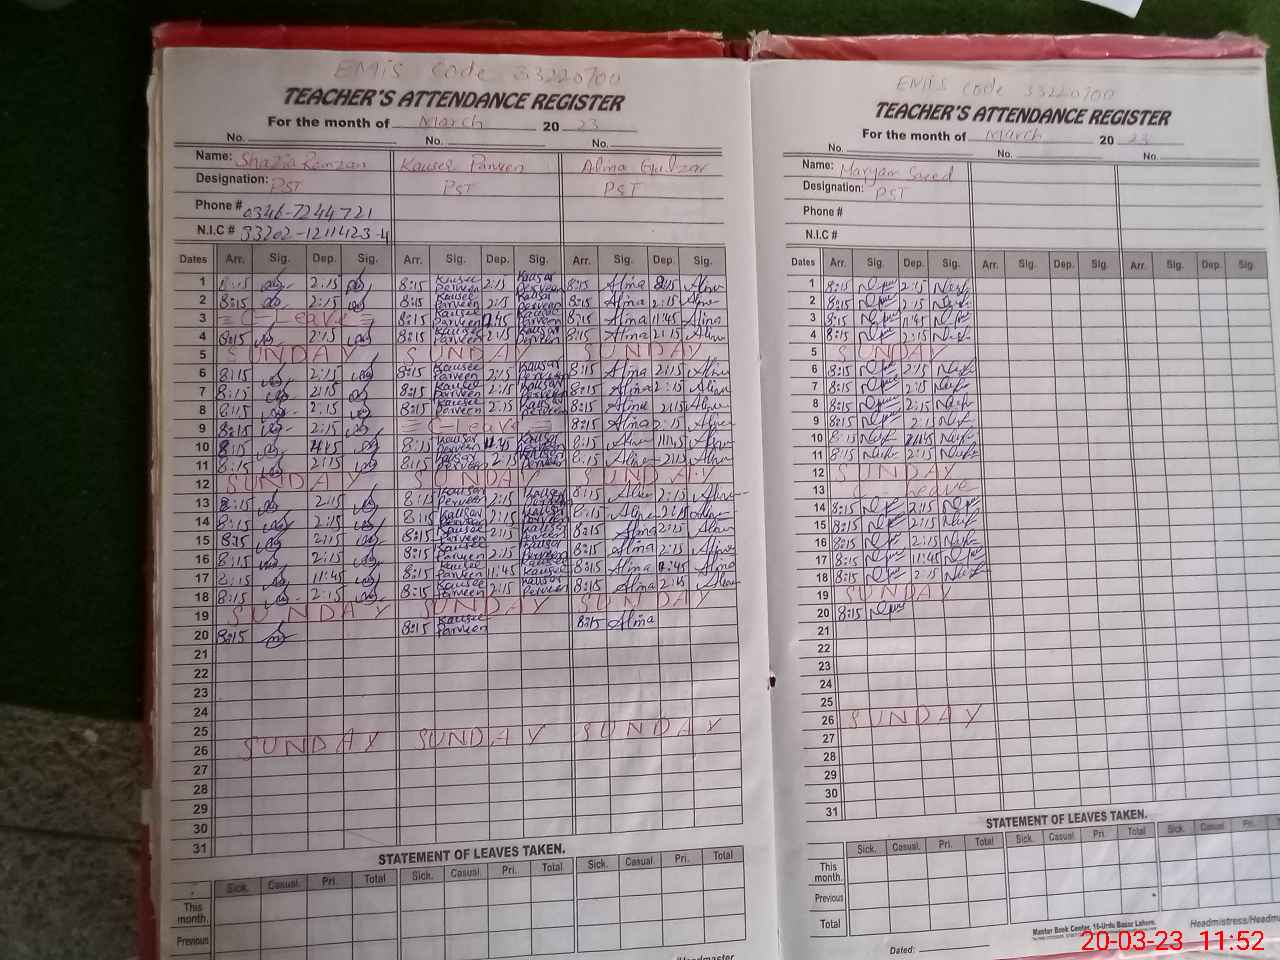 EMIS Code 33220700
TEACHER'S ATTENDANCE REGISTER
For the month of March 2023
No. No. No.
Name: Shazia Ramzan Kausar Parveen Alina Gulzar
Designation: PST PST PST
Phone # 0346-7244721
N.I.C # 33202-1211423-4
Dates Arr. Sig. Dep. Sig. Arr. Sig. Dep. Sig. Arr. Sig. Dep. Sig.
1 8:15 2:15 8:15 Kausar Parveen 2:15 Kausar Parveen 8:15 Alina Alina
2 8:15 2:15 8:15 Kausar Parveen 2:15 Kausar Parveen 8:15 Alina 2:15 Alina
3 C-Leave 8:15 Kausar Parveen 11:45 Kausar Parveen 8:15 Alina 11:45 Alina
4 8:15 2:15 8:15 Kausar Parveen 2:15 Kausar Parveen 8:15 Alina 2:15 Alina
5 SUNDAY SUNDAY SUNDAY
6 8:15 2:15 8:15 Kausar Parveen 2:15 Kausar Parveen 8:15 Alina 2:15 Alina
7 8:15 2:15 8:15 Kausar Parveen 2:15 Kausar Parveen 8:15 Alina 2:15 Alina
8 8:15 2:15 8:15 Kausar Parveen 2:15 Kausar Parveen 8:15 Alina 2:15 Alina
9 8:15 2:15 C-Leave 8:15 Alina 2:15 Alina
10 8:15 8:15 Kausar Parveen 11:45 Kausar Parveen 8:15 Alina 11:45 Alina
11 8:15 2:15 8:15 Kausar Parveen 2:15 Kausar Parveen 8:15 Alina 2:15 Alina
12 SUNDAY SUNDAY SUNDAY
13 8:15 2:15 8:15 Kausar Parveen 2:15 Kausar Parveen 8:15 Alina 2:15 Alina
14 8:15 2:15 8:15 Kausar Parveen 2:15 Kausar Parveen 8:15 Alina 2:15 Alina
15 8:15 2:15 8:15 Kausar Parveen 2:15 Kausar Parveen 8:15 Alina 2:15 Alina
16 8:15 2:15 8:15 Kausar Parveen 2:15 Kausar Parveen 8:15 Alina 2:15 Alina
17 8:15 11:45 8:15 Kausar Parveen 11:45 Kausar 8:15 Alina 11:45 Alina
18 8:15 2:15 8:15 Kausar Parveen 2:15 Kausar Parveen 8:15 Alina 2:15 Alina
19 SUNDAY SUNDAY SUNDAY
20 8:15 8:15 Kausar Parveen 8:15 Alina
21
22
23
24
25
26 SUNDAY SUNDAY SUNDAY
27
28
29
30
31
STATEMENT OF LEAVES TAKEN.
Sick. Casual. Pri. Total Sick. Casual. Pri. Total Sick. Casual. Pri. Total
This month.
Previous
EMIS Code 33220700
TEACHER'S ATTENDANCE REGISTER
For the month of March 2023
No. No. No.
Name: Maryam Saeed
Designation: PST
Phone #
N.I.C #
Dates Arr. Sig. Dep. Sig. Arr. Sig. Dep. Sig. Arr. Sig. Dep. Sig.
1 8:15 2:15
2 8:15 2:15
3 8:15 11:45
4 8:15 2:15
5 SUNDAY
6 8:15 2:15
7 8:15 2:15
8 8:15 2:15
9 8:15 2:15
10 8:15 11:45
11 8:15 2:15
12 SUNDAY
13 C Leave
14 8:15 2:15
15 8:15 2:15
16 8:15 2:15
17 8:15 11:45
18 8:15 2:15
19 SUNDAY
20 8:15
21
22
23
24
25
26 SUNDAY
27
28
29
30
31
STATEMENT OF LEAVES TAKEN.
Sick. Casual. Pri. Total Sick. Casual. Pri. Total Sick. Casual. Pri.
This month.
Previous
Total
Master Book Center, 16-Urdu Bazar Lahore.
Dated:
Headmistress/Headm
/Headmaster
20-03-23 11:52